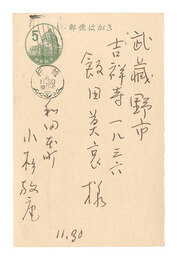 郵便はがき
5
武蔵野市
吉祥寺一八三六
飯田英哀様
和田本町
小杉放庵
11.30